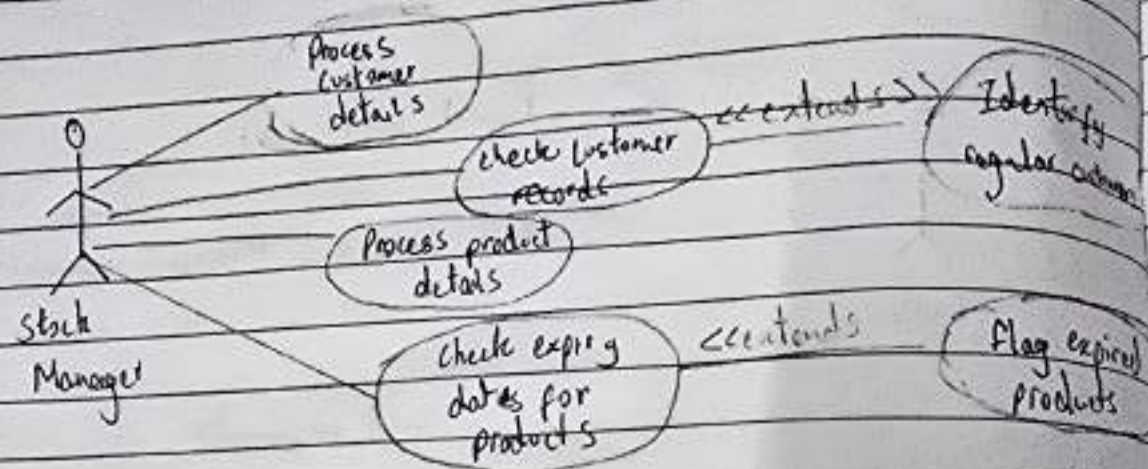 Process
customer
details
check customer
records
<<extends>>
Identify
regular customer
Process product
details
Stock
Manager
check expiry
dates for
products
<<extends
flag expired
products